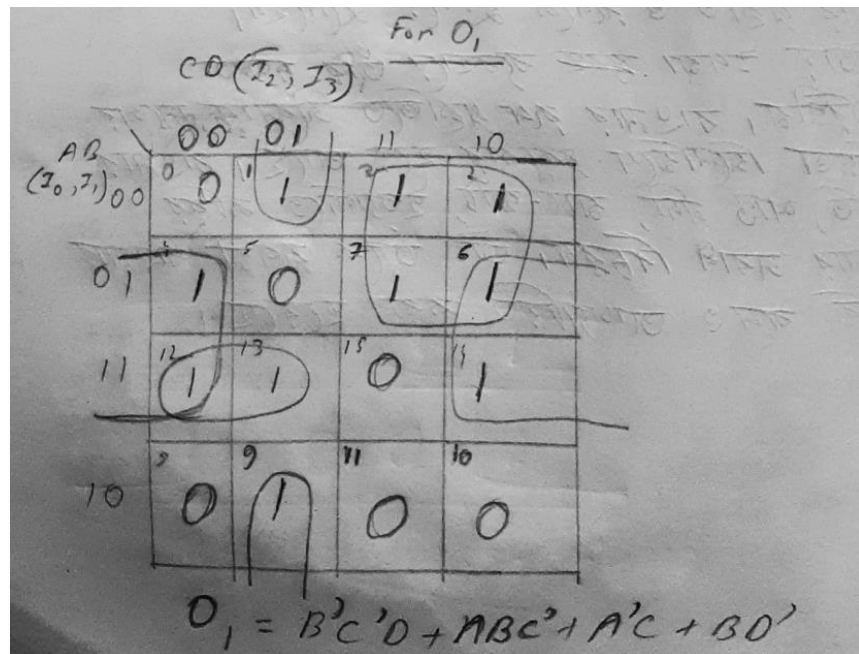 For O₁
CD (I₂, I₃)
00 01 11 10
AB
(I₀, I₁) 00 0 0 1 1 3 1 2 1
01 4 1 5 0 7 1 6 1
11 12 1 13 1 15 0 14 1
10 0 9 1 11 0 10 0
O₁ = B'C'D + ABC' + A'C + BD'